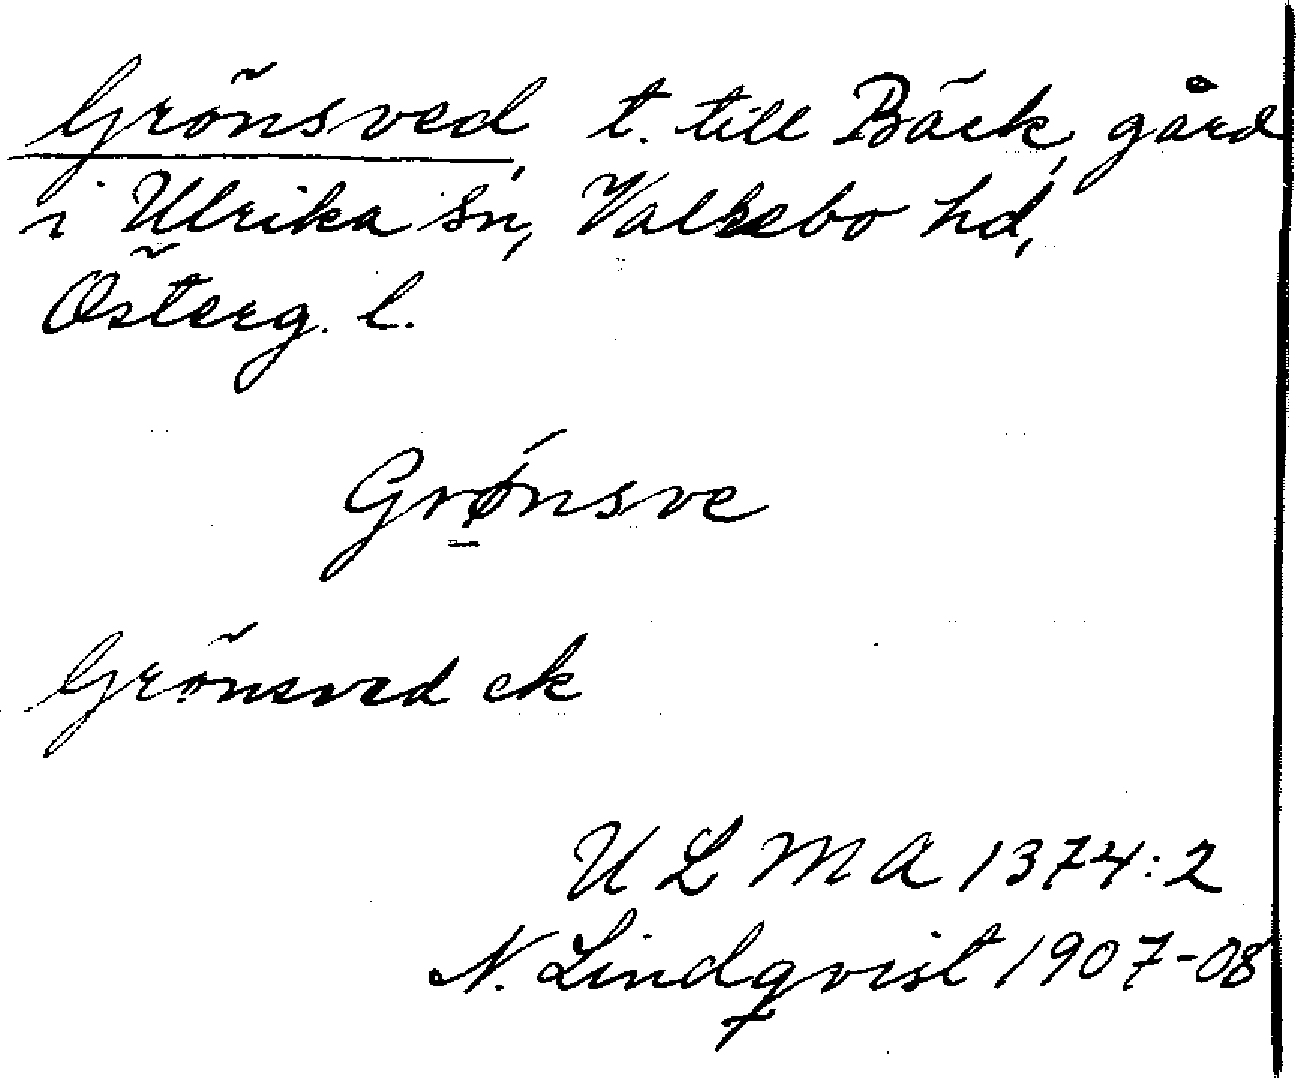 Grönsved, t. till Bäck, gård
i Ulrika sn, Valkebo hd,
Österg. l.
Grǿnsve
Grönsved ek
ULMA 1374:2
N. Lindqvist 1907-08